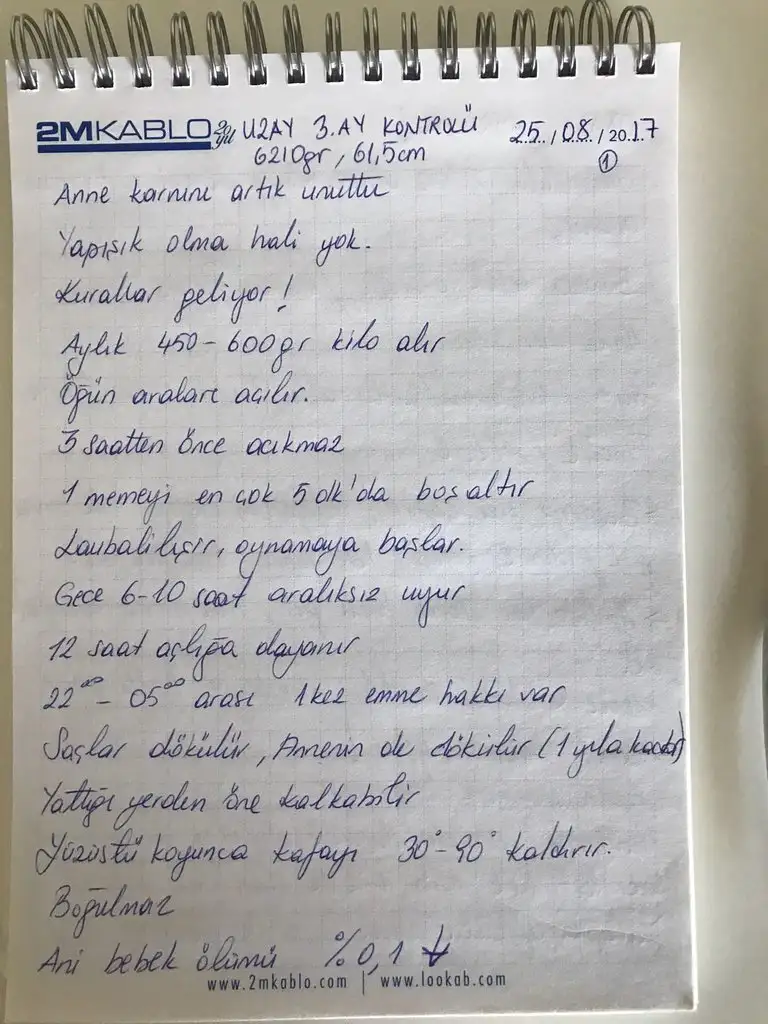 2MKABLO 20 yıl UZAY 3.AY KONTROLÜ 25/08/2017
6210gr, 61,5cm 1
Anne karnını artık unuttu
Yapışık olma hali yok.
Kurallar geliyor!
Aylık 450-600gr kilo alır
Öğün araları açılır.
3 saatten önce acıkmaz
1 memeyi en çok 5 dk'da boşaltır
Laubalileşir, oynamaya başlar.
Gece 6-10 saat aralıksız uyur
12 saat açlığa dayanır
22⁰⁰ - 05⁰⁰ arası 1 kez emme hakkı var
Saçlar dökülür, Annenin de dökülür (1 yıla kadar)
Yattığı yerden öne kalkabilir
Yüzüstü koyunca kafayı 30°-90° kaldırır.
Boğulmaz
Ani bebek ölümü %0,1 ↓
www.2mkablo.com | www.lookab.com